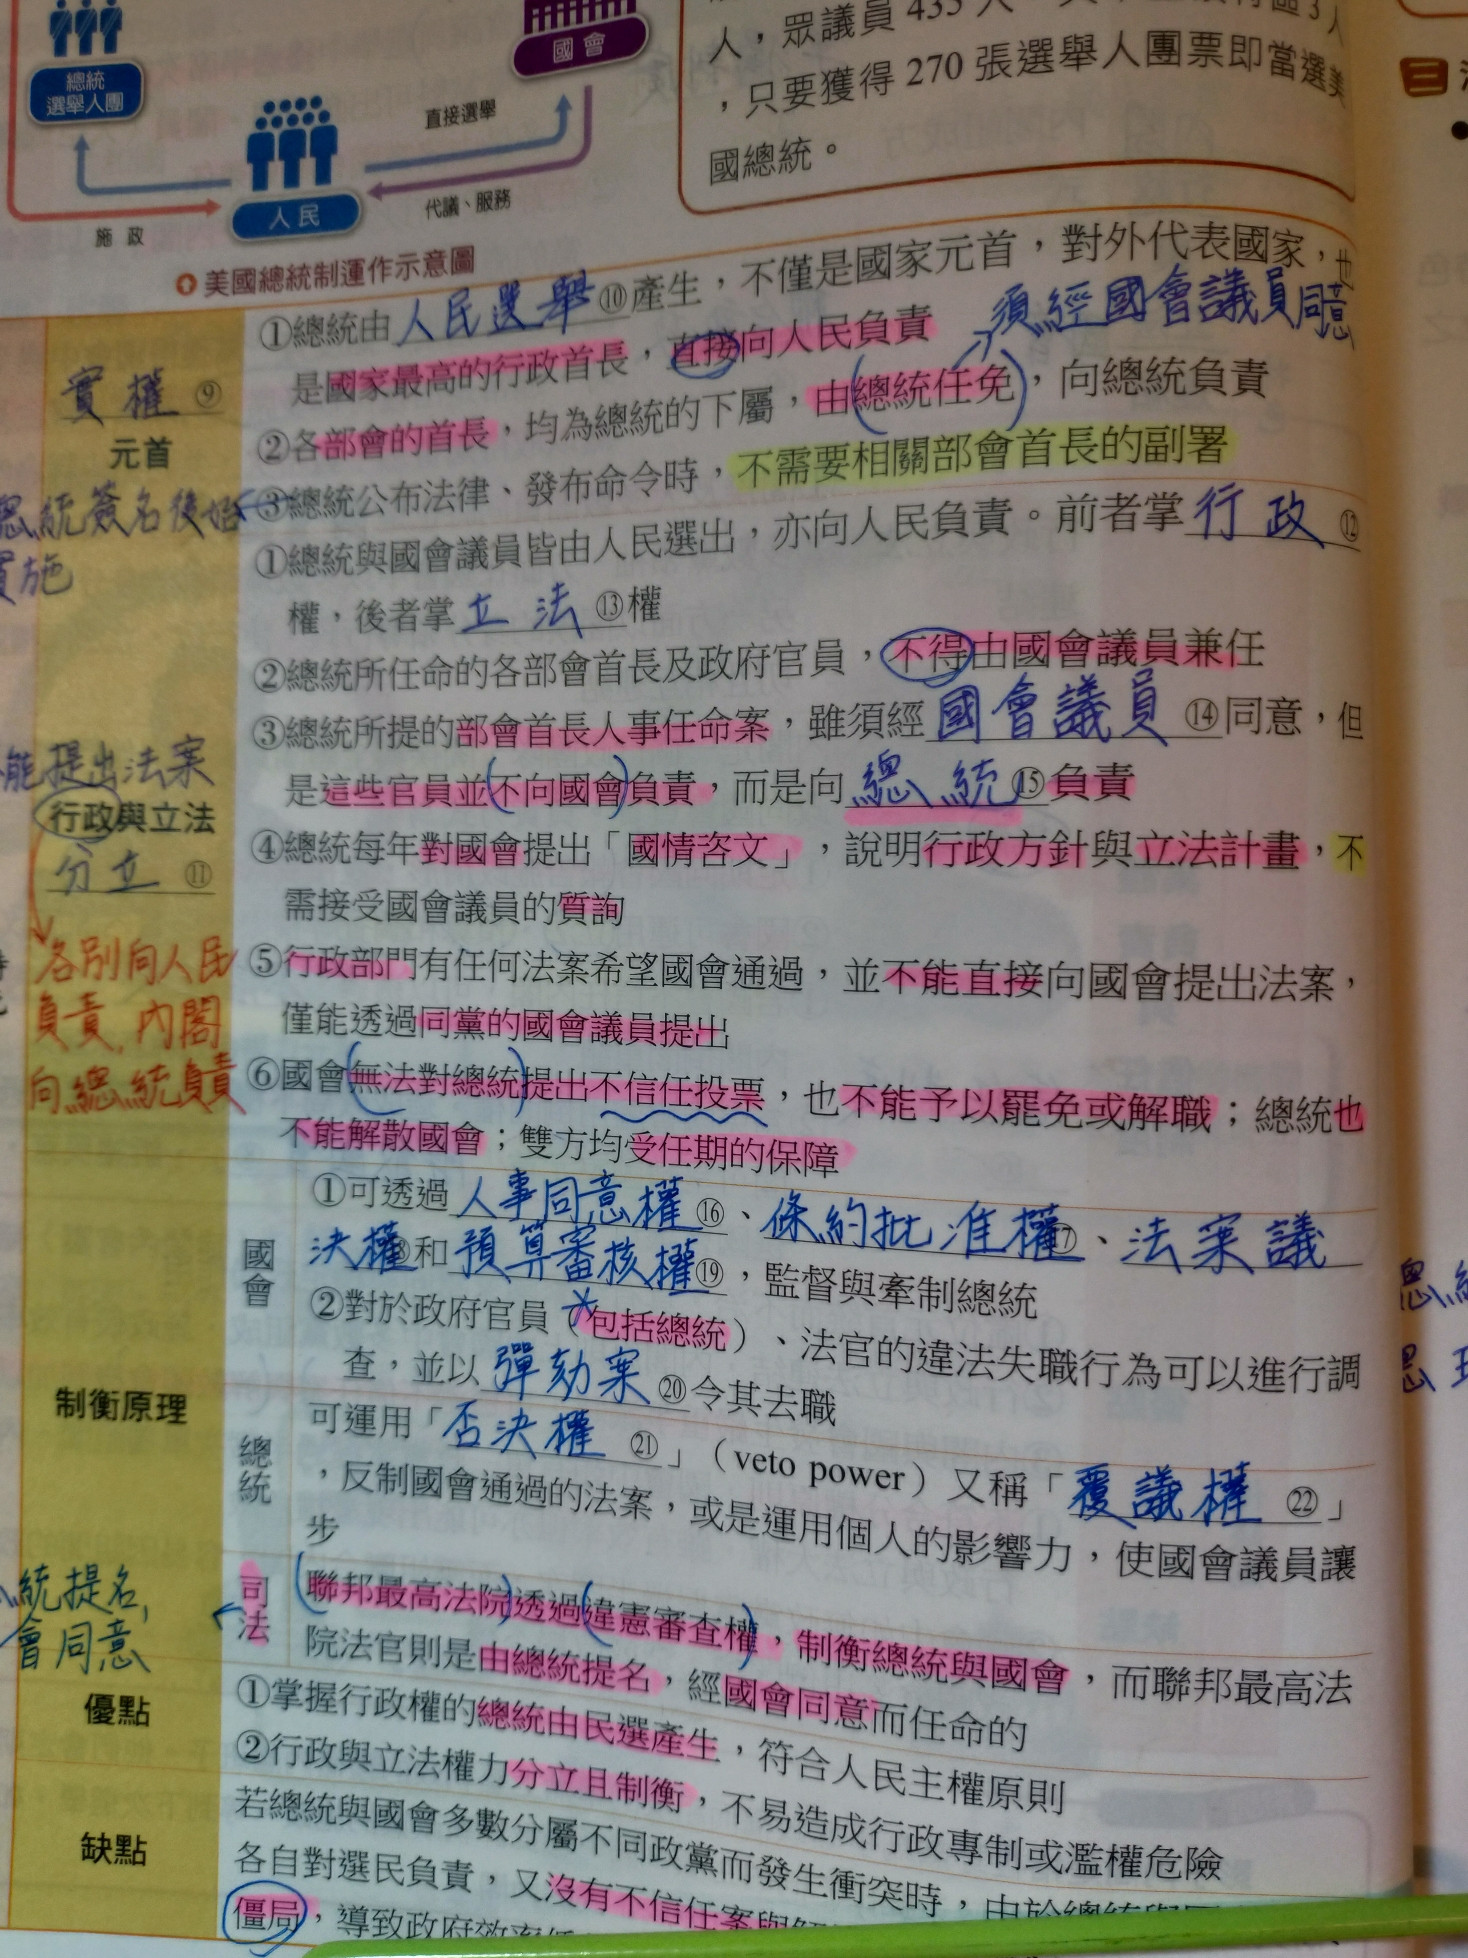 總統
選舉人團
國會
直接選舉
人民
代議、服務
施政
美國總統制運作示意圖
人，眾議員435人
，只要獲得270張選舉人團票即當選美
國總統。
實權⑨
元首
①總統由人民選舉⑩產生，不僅是國家元首，對外代表國家，也
是國家最高的行政首長，直接向人民負責
須經國會議員同意
②各部會的首長，均為總統的下屬，由(總統任免)，向總統負責
③總統公布法律、發布命令時，不需要相關部會首長的副署
總統簽名後始
實施
能提出法案
行政與立法
分立⑪
各別向人民
負責,內閣
向總統負責
①總統與國會議員皆由人民選出，亦向人民負責。前者掌行政⑫
權，後者掌立法⑬權
②總統所任命的各部會首長及政府官員，不得由國會議員兼任
③總統所提的部會首長人事任命案，雖須經國會議員⑭同意，但
是這些官員並(不向國會)負責，而是向總統⑮負責
④總統每年對國會提出「國情咨文」，說明行政方針與立法計畫，不
需接受國會議員的質詢
⑤行政部門有任何法案希望國會通過，並不能直接向國會提出法案，
僅能透過同黨的國會議員提出
⑥國會(無法對總統)提出不信任投票，也不能予以罷免或解職；總統也
不能解散國會；雙方均受任期的保障
制衡原理
國會
①可透過人事同意權⑯、條約批准權⑰、法案議
決權⑱和預算審核權⑲，監督與牽制總統
②對於政府官員（包括總統）、法官的違法失職行為可以進行調
查，並以彈劾案⑳令其去職
總統
可運用「否決權㉑」（veto power）又稱「覆議權㉒」
，反制國會通過的法案，或是運用個人的影響力，使國會議員讓
步
統提名,
會同意
司法
(聯邦最高法院)透過(違憲審查權)，制衡總統與國會，而聯邦最高法
院法官則是由總統提名，經國會同意而任命的
優點
①掌握行政權的總統由民選產生，符合人民主權原則
②行政與立法權力分立且制衡，不易造成行政專制或濫權危險
缺點
若總統與國會多數分屬不同政黨而發生衝突時，由於總統與
各自對選民負責，又沒有不信任案與
僵局，導致政府效率
三